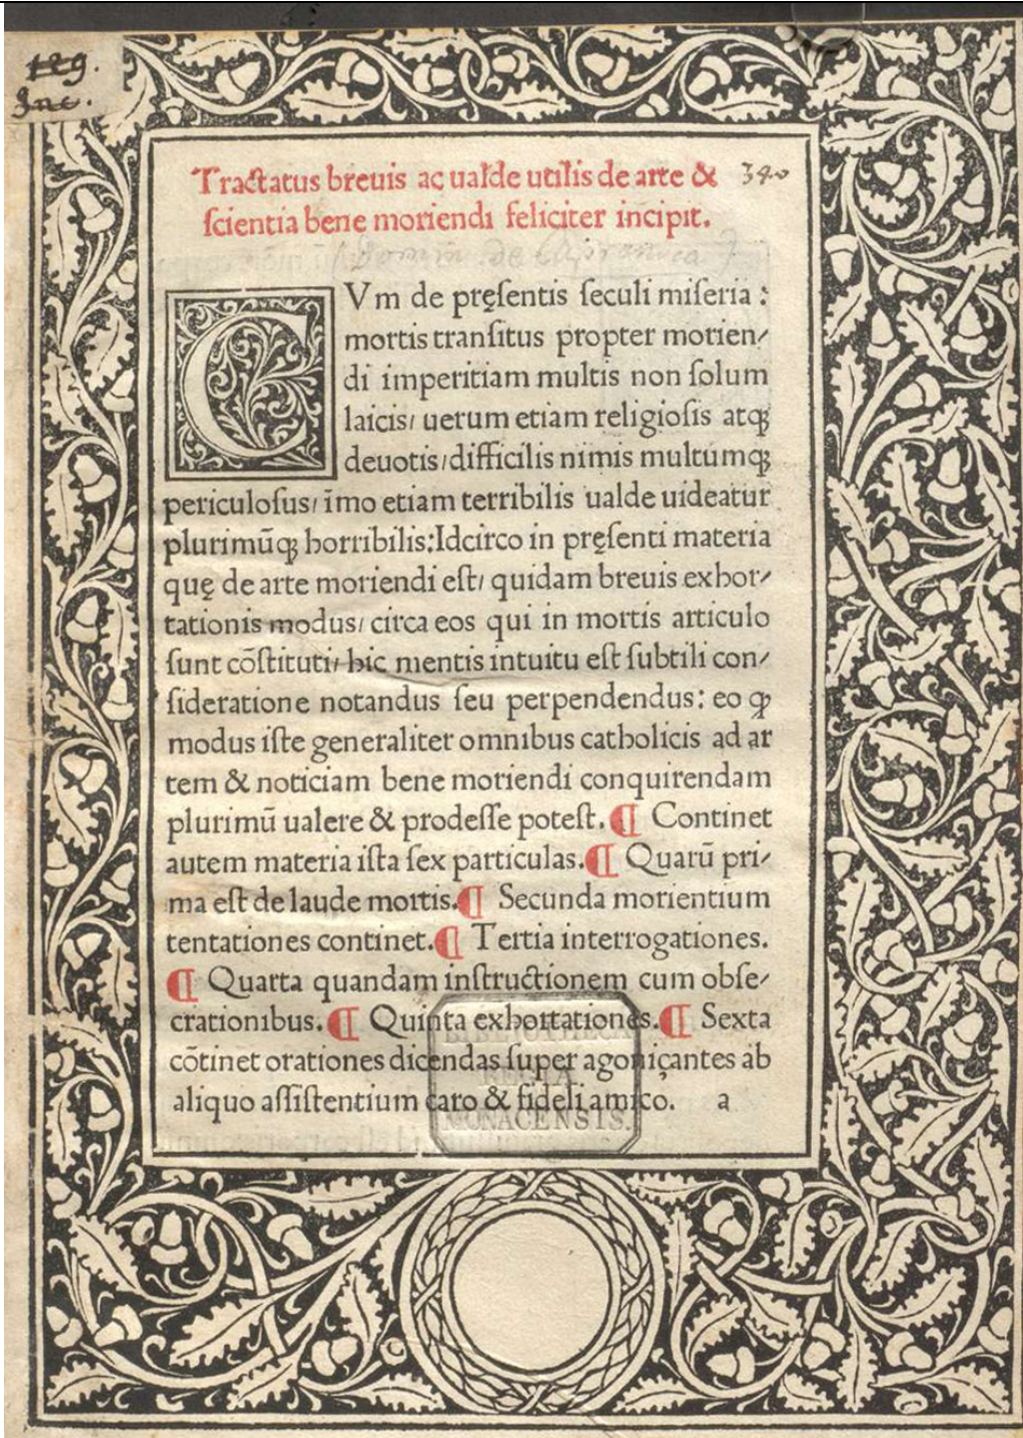 129.
Inc.
Tractatus breuis ac ualde utilis de arte &
340
ſcientia bene moriendi feliciter incipit.
CVm de pręſentis ſeculi miſeria :
mortis tranſitus propter morien/
di imperitiam multis non ſolum
laicis/ uerum etiam religioſis atqꝫ
deuotis/difficilis nimis multumqꝫ
periculoſus/ īmo etiam terribilis ualde uideatur
plurimūqꝫ horribilis:Idcirco in pręſenti materia
quę de arte moriendi eſt/ quidam breuis exhor/
tationis modus/ circa eos qui in mortis articulo
ſunt cōſtituti/ hic mentis intuitu eſt ſubtili con/
ſideratione notandus ſeu perpendendus: eo ꝙ
modus iſte generaliter omnibus catholicis ad ar
tem & noticiam bene moriendi conquirendam
plurimū ualere & prodeſſe poteſt. ¶ Continet
autem materia iſta ſex particulas. ¶ Quarū pri/
ma eſt de laude mortis. ¶ Secunda morientium
tentationes continet. ¶ Tertia interrogationes.
¶ Quarta quandam inſtructionem cum obſe/
crationibus. ¶ Quinta exhortationes. ¶ Sexta
cōtinet orationes dicendas ſuper agoniçantes ab
aliquo aſſiſtentium caro & fideli amico. a
BIBLIOTHECA
REGIA
MONACENSIS.